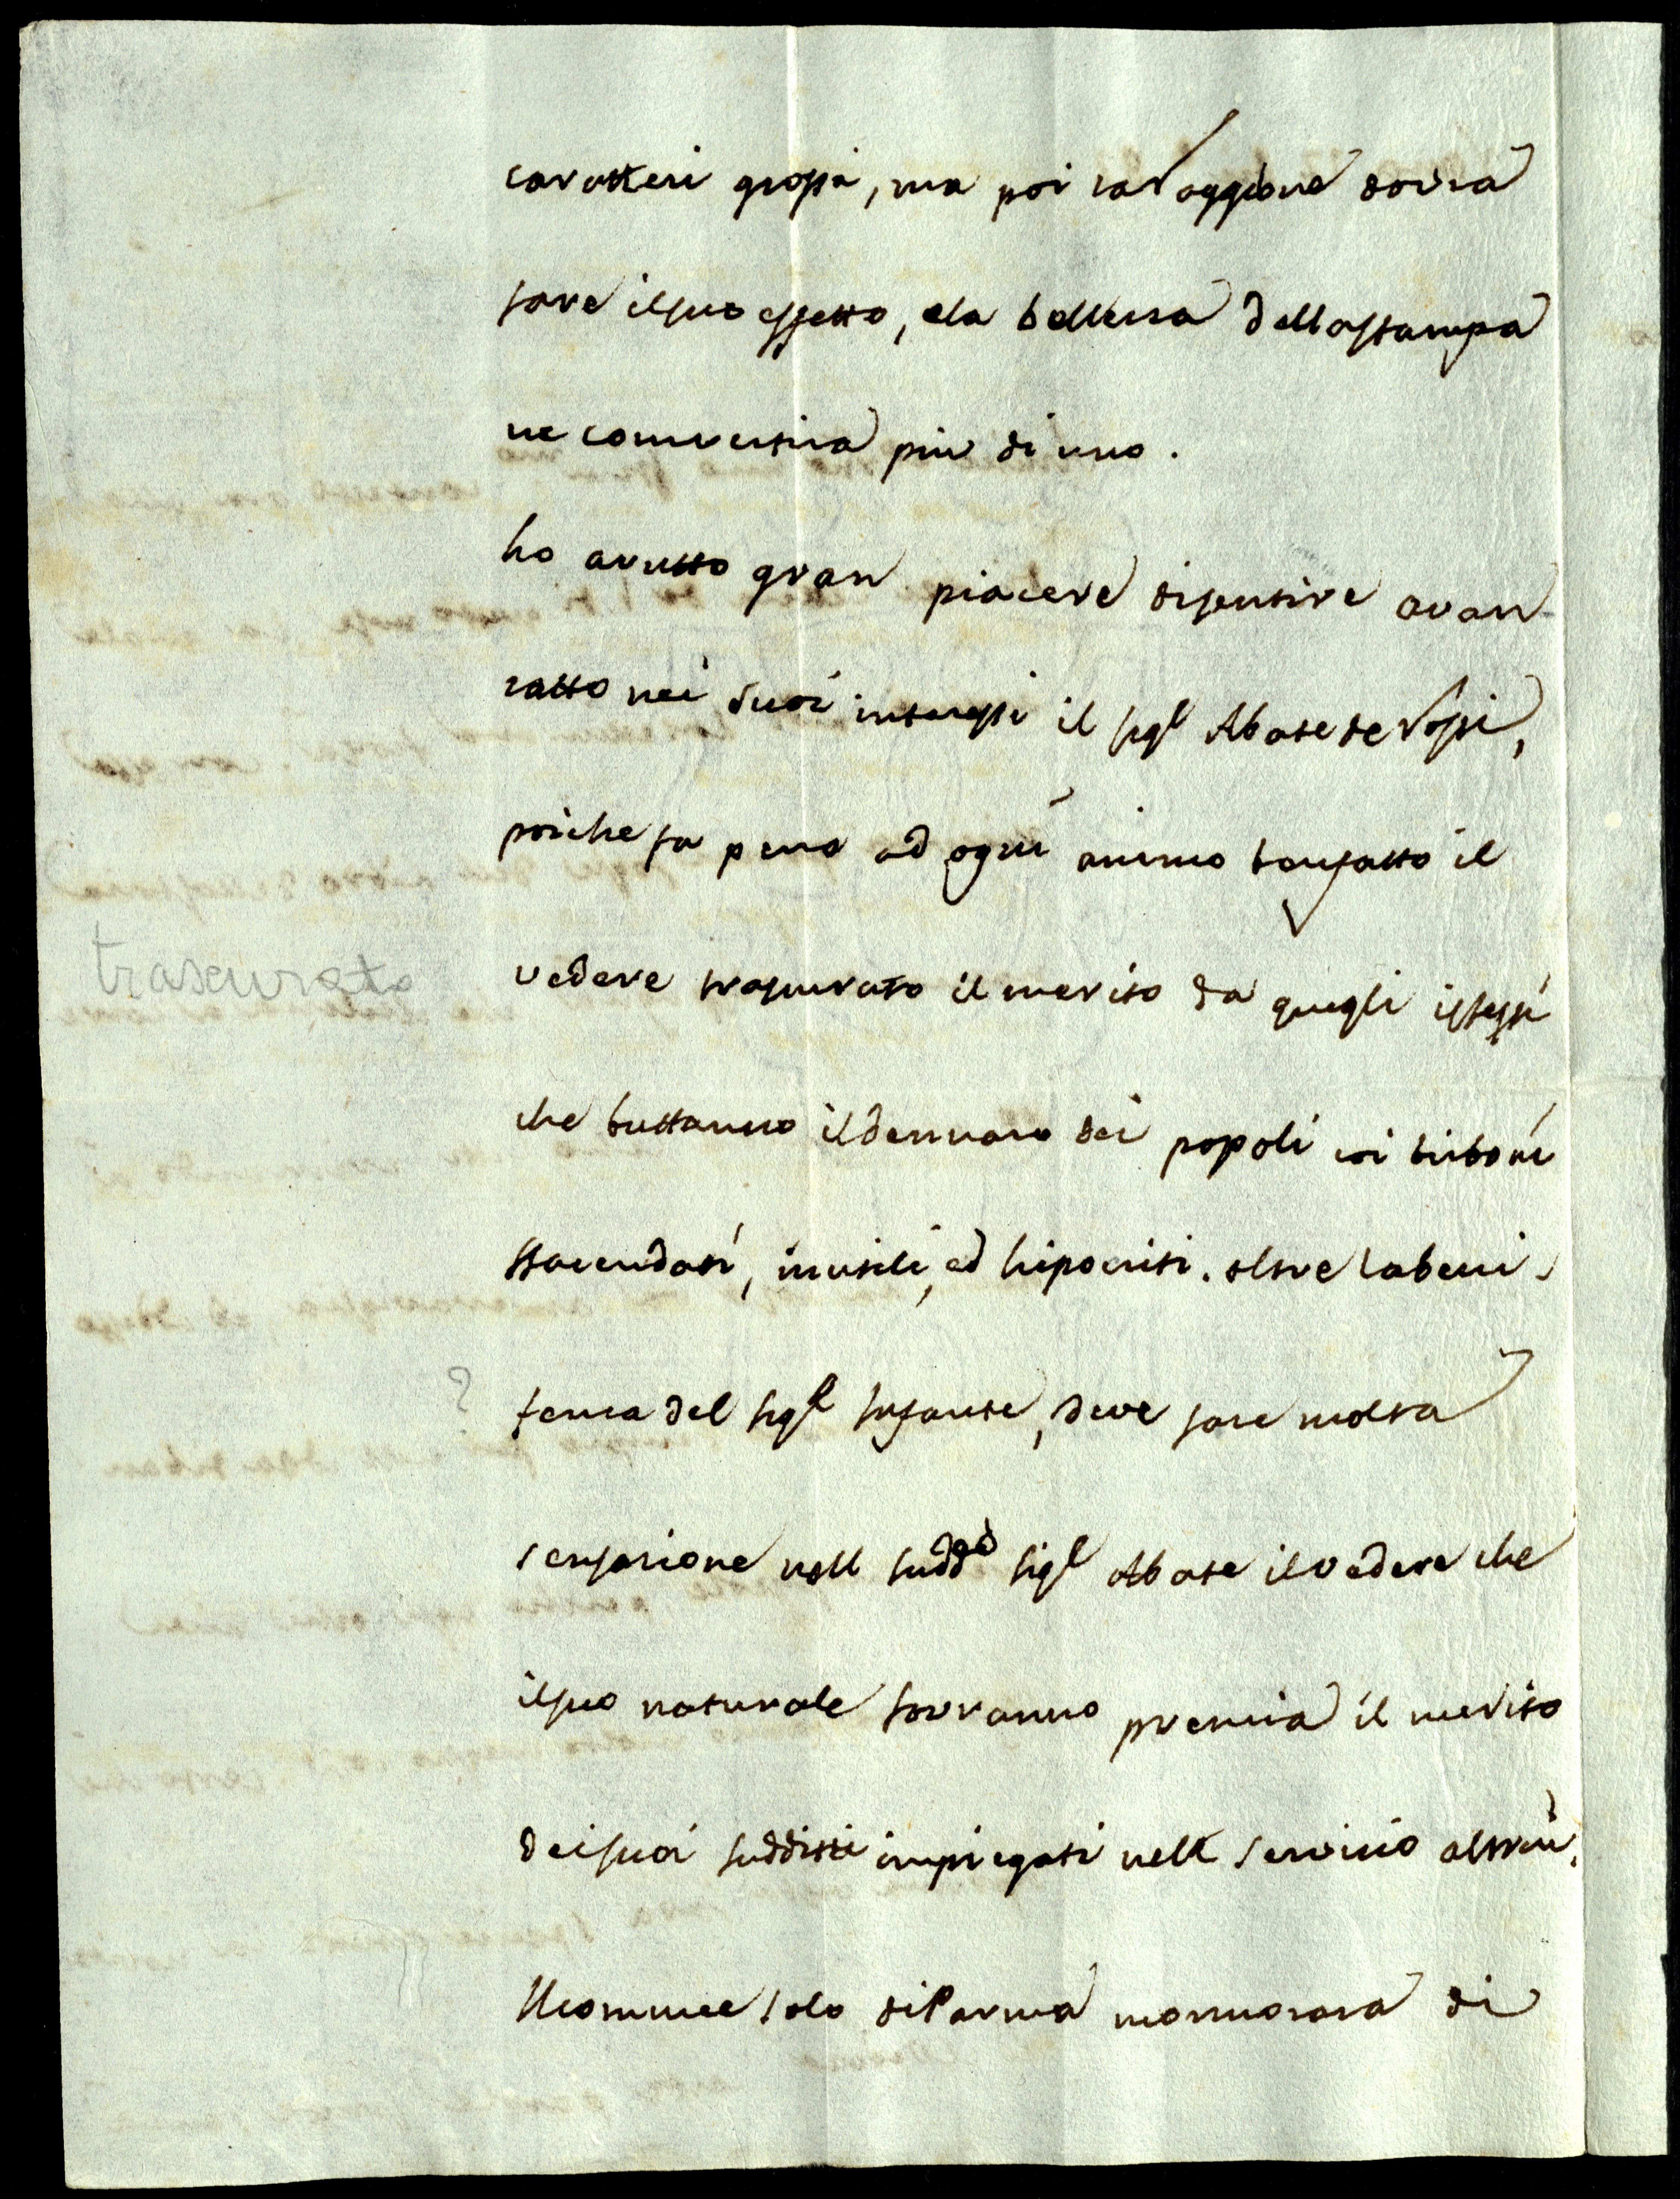 caratteri grossi, ma poi la raggione dovrà
fare il suo effetto, e la bellezza della stampa
ne convertirà più di uno.
ho avutto gran piacere di sentire avan
zatto nei suoi interessi il sigr Abate de Rossi,
poiche fa pena ad ogni animo bonfatto il
trascurato
vedere trascurato il merito da quegli istessi
che buttanno il dennaro dei popoli coi birboni
sfacendati, inutili, ed hipocriti. oltre la beni-
?
fenza del sigr Infante, deve fare molta
sensazione nell sudd.º sigr Abate il vedere che
il suo naturale sovranno premia il merito
dei suoi sudditti impiegati nell servizio altrui.
Il nomme solo di Parma mormorarà di